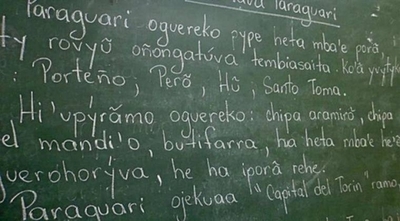 Paraguari
Paraguari oguereko pype heta mba'e porã, i
ty rovyũ oñongatúva tembiasaita. ko'ã yvyty
: Porteño, Perõ, Hũ, Santo Toma.
Hi'upyrãmo oguereko: chipa aramirõ, chipa
el mandi'o, butifarra, ha heta mba'e he'ẽ
uerohorýva, he ha iporã rehe.
Paraguari ojekuaa "Capital del Torin" ramo.